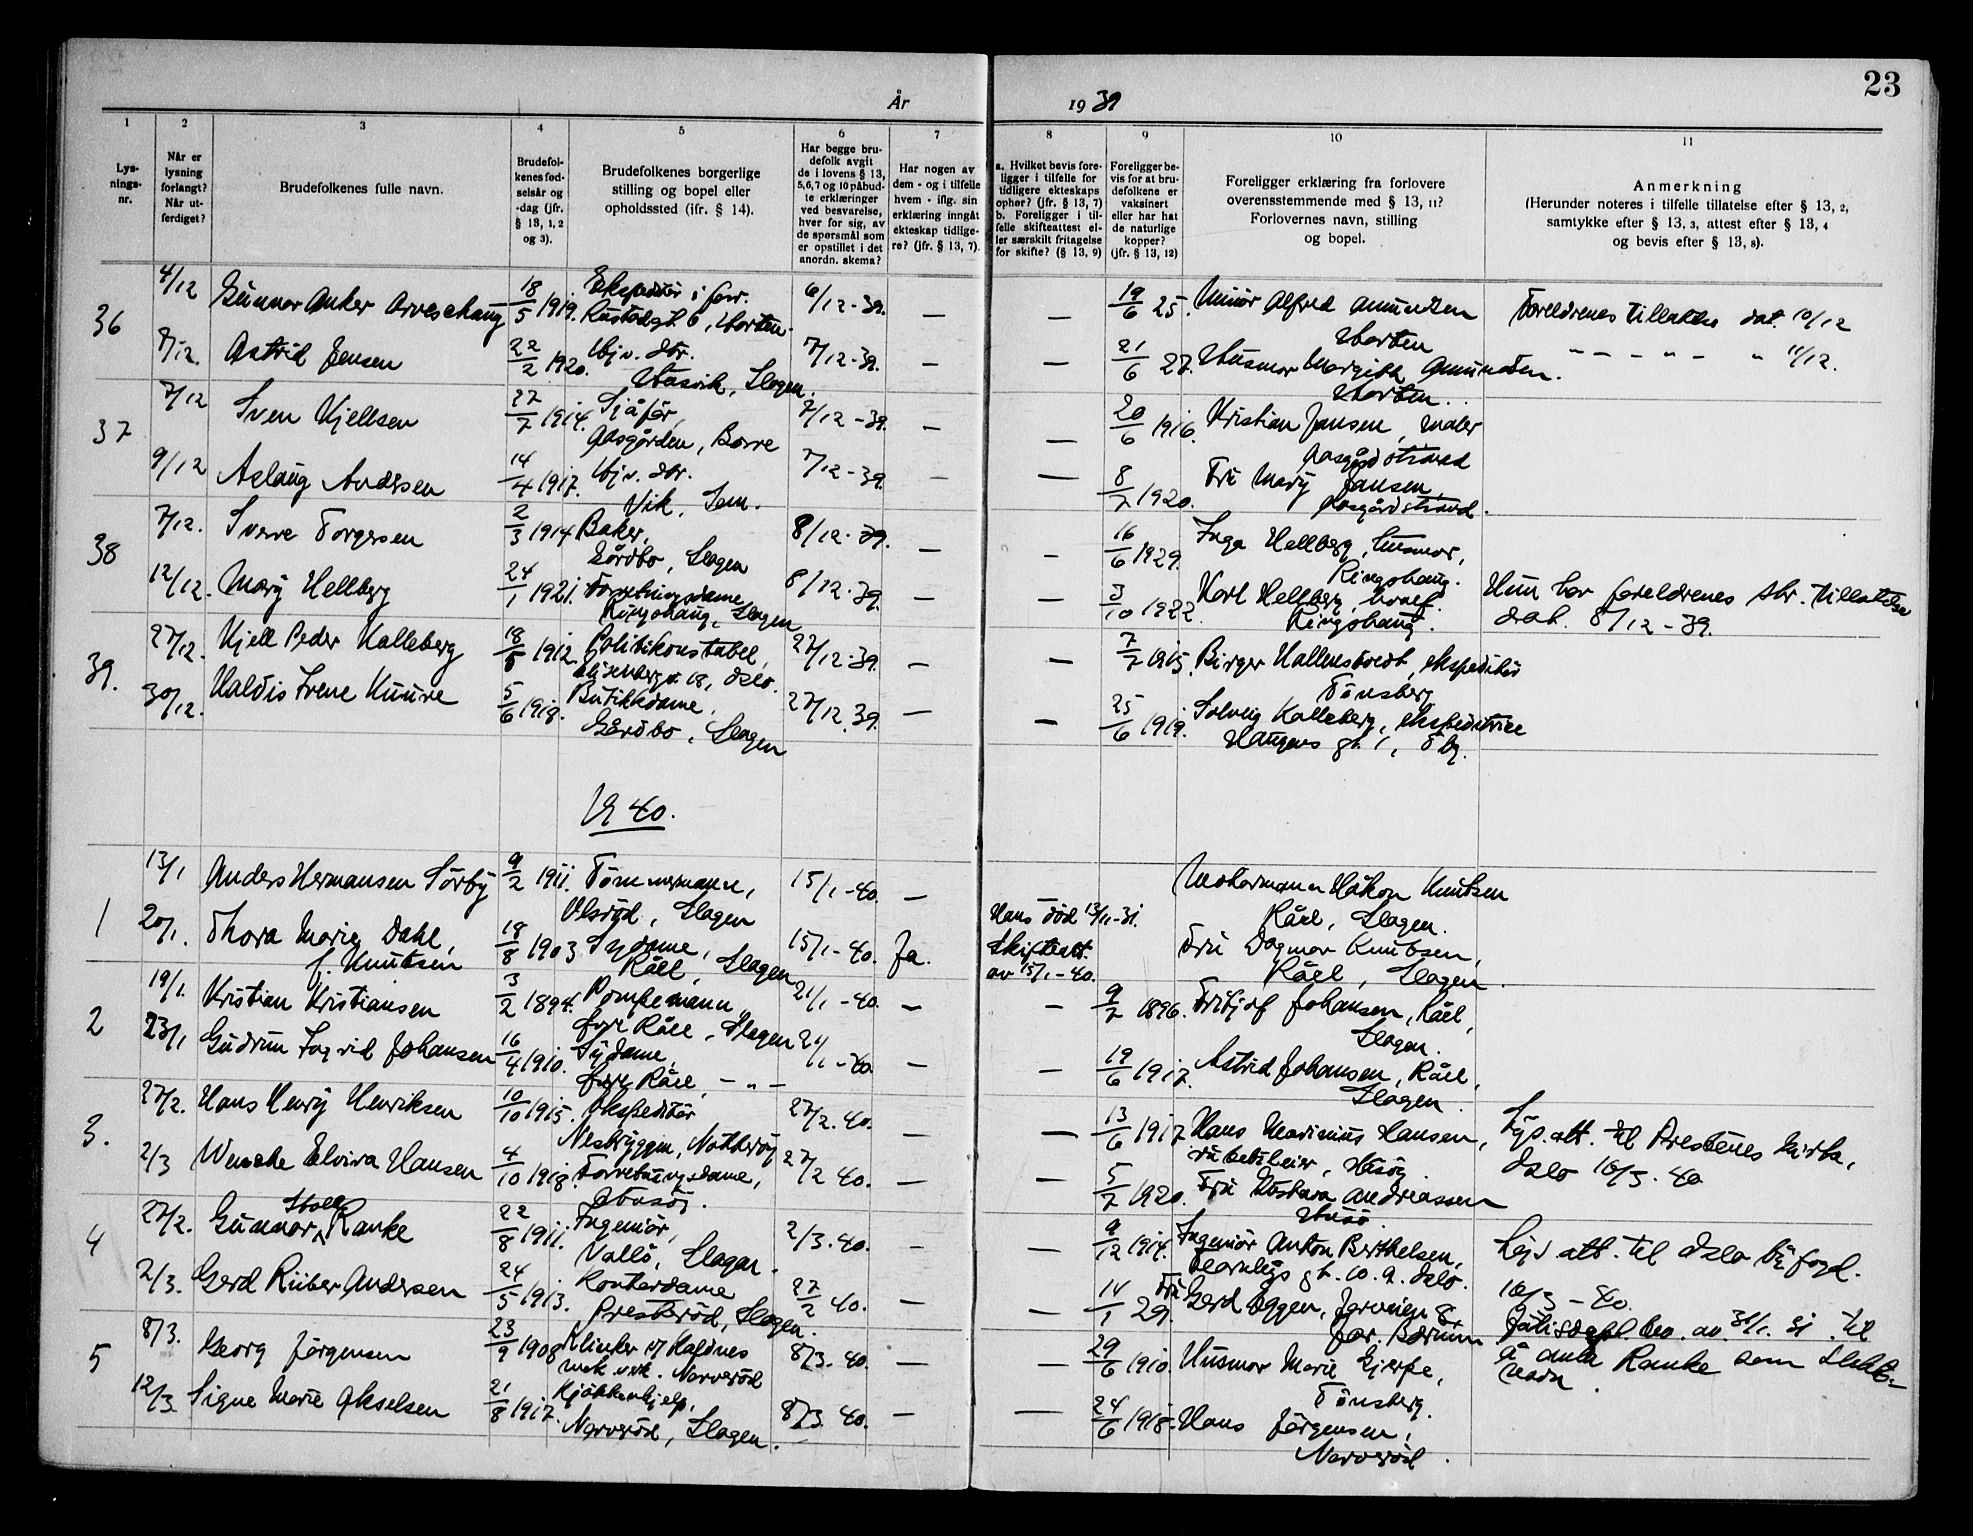 23
År 1939
1 2 3 4 5 6 7 8 9 10 11
Lys-
nings-
nr.
Når er
lysning
forlangt?
Når ut-
ferdiget?
Brudefolkenes fulle navn.
Brudefol-
kenes fød-
selsår og
-dag (jfr.
§ 13, 1, 2
og 3).
Brudefolkenes borgerlige
stilling og bopel eller
opholdssted (ifr. § 14).
Har begge bru-
defolk avgit
de i lovens § 13,
5, 6, 7 og 10 påbud-
te erklæringer
ved besvarelse,
hver for sig, av
de spørsmål som
er opstillet i det
anordn. skema?
Har nogen av
dem - og i tilfelle
hvem - iflg. sin
erklæring inngått
ekteskap tidlige-
re? (jfr. § 13, 7).
a. Hvilket bevis fore-
ligger i tilfelle for
tidligere ekteskaps
ophør? (jfr. § 13, 7)
b. Foreligger i til-
felle skifteattest el-
ler særskilt fritagelse
for skifte? (§ 13, 9)
Foreligger be-
vis for at bru-
defolkene er
vaksinert
eller har hat
de naturlige
kopper?
(jfr. § 13, 12)
Foreligger erklæring fra forlovere
overensstemmende med § 13, 11?
Forlovernes navn, stilling
og bopel.
Anmerkning
(Herunder noteres i tilfelle tillatelse efter § 13, 2,
samtykke efter § 13, 3, attest efter § 13, 4
og bevis efter § 13, 8).
36 4/12 Gunnar Anker Arveschaug 18/5 1919. Ekspeditør i forr. 6/12-39. — — 19/6 25. Alfred Amundsen Foreldrenes tillatelse dat. 10/12
Rustadgt. 6, Horten. Horten
8/12. Astrid Jensen 22/2 1920. Hjv. dtr. 7/12-39. — — 21/6 27. Husmor Margith Amundsen. 11/12.
Husvik, Slagen. Horten.
37 7/12 Sven Kjellsen 27/7 1914. Sjåfør, 7/12-39. — — 20/6 1916. Kristian Jansen, maler
Aasgården, Borre Aasgårdstrand
9/12 Aslaug Andersen 14/4 1917. Hjv. dtr. 7/12-39. — — 8/7 1920. Fru Mary Jansen,
Vik, Sem. Aasgårdstrand.
38 7/12. Sverre Torgersen 2/3 1914 Baker, 8/12-39. — — 16/6 1929. Inga Hellberg, husmor,
Gårdbo, Slagen Ringshaug.
12/12. Mary Hellberg 24/1 1921. Forretningsdame, 8/12-39. — — 3/10 1922. Karl Hellberg, Hun har foreldrenes skr. tillatelse
Ringshaug, Slagen Ringshaug. dat. 8/12-39.
39. 27/12. Kjell Peder Kalleberg 18/5 1912. Politikonstabel, 27/12-39. — — 7/7 1915. Birger Hallenstvedt, ekspeditør
18, Oslo. Tønsberg
30/12. Haldis Irene Knurre 5/6 1918. Butikkdame, 27/12.39. — — 25/6 1919. Solveig Kalleberg, ekspeditrise
Gårdbo, Slagen Haugens gt. 1, Tbg.
1940.
1 13/1 Anders Hermansen Sørby 9/2 1911. Tømmermann, 15/1-40. — Motormann Håkon Knutsen
Ulsrød, Slagen Råel, Slagen.
20/1. Thora Marie Dahl, 18/8 1903 Sydame, 15/1-40. Ja. Hans død 13/11-31. Fru Dagmar Knutsen,
f. Knutsen Råel, Slagen Skifteatt. av 15/1-40. Råel, Slagen.
2 19/1. Kristian Kristiansen 3/2 1894. Pompemann, 21/1-40. — — 9/7 1896. Fritjof Johansen, Råel,
Råel, Slagen Slagen.
23/1 Gudrun Ingrid Johansen 16/4 1910. Sydame, 21/1-40. — — 19/6 1917. Astrid Johansen, Råel,
Råel, —„— Slagen.
3. 27/2. Hans Henry Henriksen 10/10 1915. Ekspeditør 27/2.40. — — 13/6 1917 Hans Marinius Hansen, Lys.att. til Prestenes kirke,
Nesbryggen, Nøtterøy Husøy Oslo 16/3.40
2/3 Wenche Elvira Hansen 4/10 1918. Forretningsdame, 27/2 40. — — 5/7 1920. Fru Gustava Andreassen
Husøy. Husø.
4 27/2. Gunnar Stoll Ranke 22/8 1911. Ingeniør, 2/3.40. — — 9/12 1914. Ingeniør Anton Berthelsen, Lys.att. til Oslo byfogd.
Vallø, Slagen. Fearnleys gt. 10.a. Oslo. 16/3-40.
2/3. Gerd Riiber Andersen 24/5 1913. Kontordame 27/2 40. — — 14/1 29. Fru Gerd Eggen, Jarveien 8, Justisdepl. bev. av 31/1. 31. til
Presterød, Slagen. Jar. Bærum å anta Ranke som slekts-
navn.
5 8/3. Georg Jørgensen 23/9 1908 Klinker v/ Kaldnes 8/3.40. — — 29/6 1910. Husmor Marie Gjerpe,
mek. verk. Narverød Tønsberg.
12/3. Signe Marie Akselsen 21/8 1917. Kjøkkenhjelp, 8/3.40. — — 24/6 1918. Hans Jørgensen,
Narverød, Slagen. Narverød.